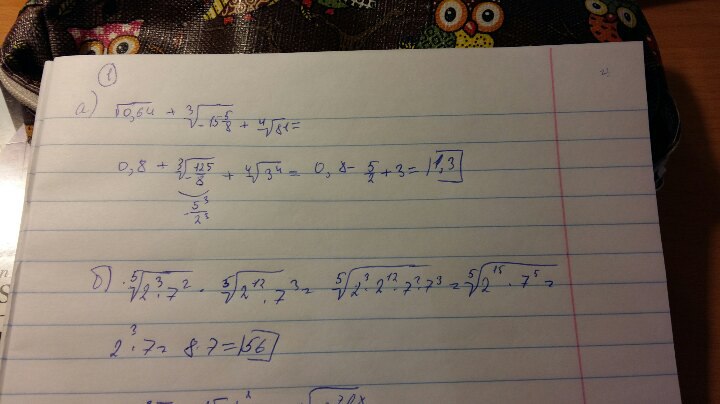 1
а) √0,64 + ³√-15 5/8 + ⁴√81 =
0,8 + ³√-125/8 + ⁴√3⁴ = 0,8 - 5/2 + 3 = 1,3
-5³/2³
б) ⁵√2³·7² · ⁵√2¹²·7³ = ⁵√2³·2¹²·7²·7³ = ⁵√2¹⁵·7⁵ =
2³·7 = 8·7 = 56